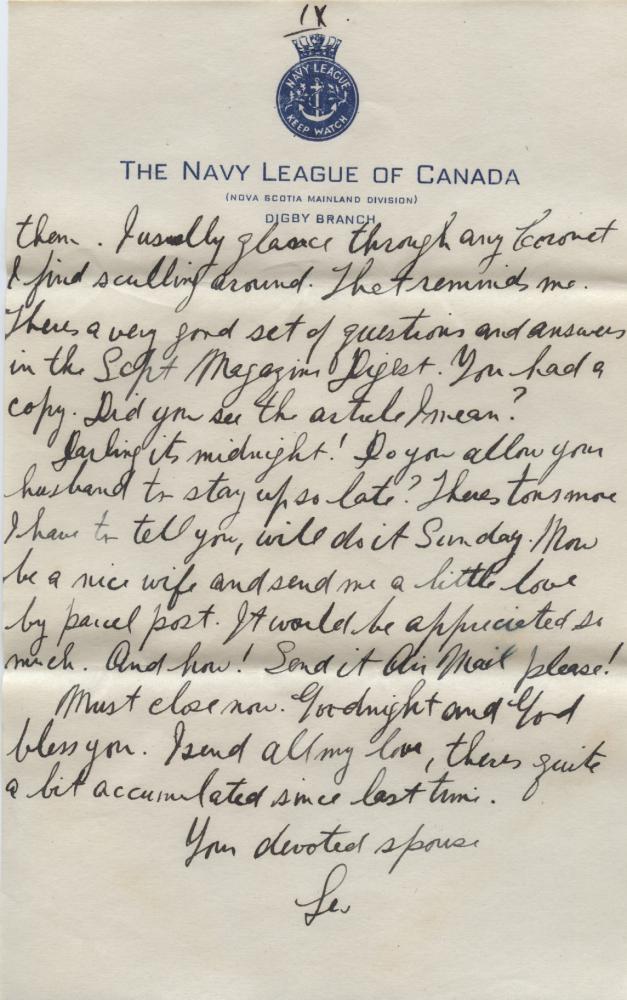 IX.
NAVY LEAGUE
KEEP WATCH
THE NAVY LEAGUE OF CANADA
(NOVA SCOTIA MAINLAND DIVISION)
DIGBY BRANCH
them. I usually glance through any Coronet
I find sculling around. That reminds me.
Theres a very good set of questions and answers
in the Sept Magazine Digest. You had a
copy. Did you see the article I mean?
Darling its midnight! Do you allow your
husband to stay up so late? Theres tons more
I have to tell you, will do it Sunday. Now
be a nice wife and send me a little love
by parcel post. It would be appreciated so
much. And how! Send it Air Mail please!
Must close now. Goodnight and God
bless you. I send all my love, theres quite
a bit accumulated since last time.
Your devoted spouse